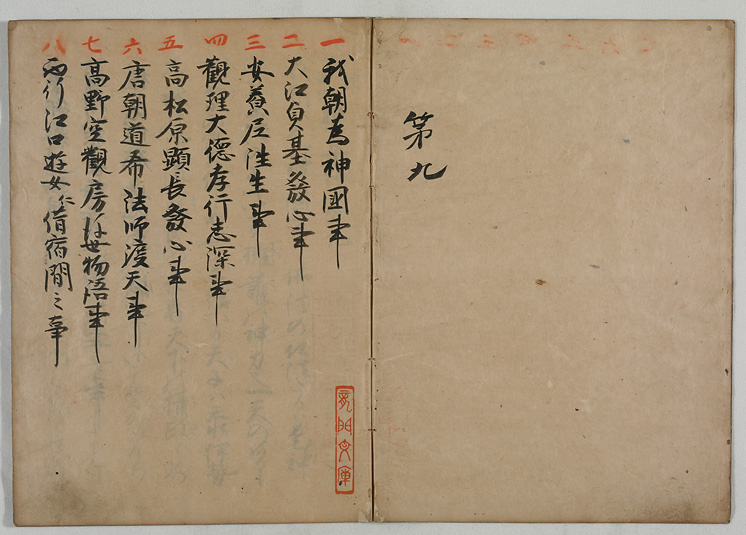 第九
一 我朝為神國事
二 大江貞基發心事
三 安養尼往生事
四 觀理大德孝行志深事
五 高松原顕長發心事
六 唐朝道希法師渡天事
七 高野空觀房浮世物語事
八 西行江口遊女仁借宿間之事
龍門文庫